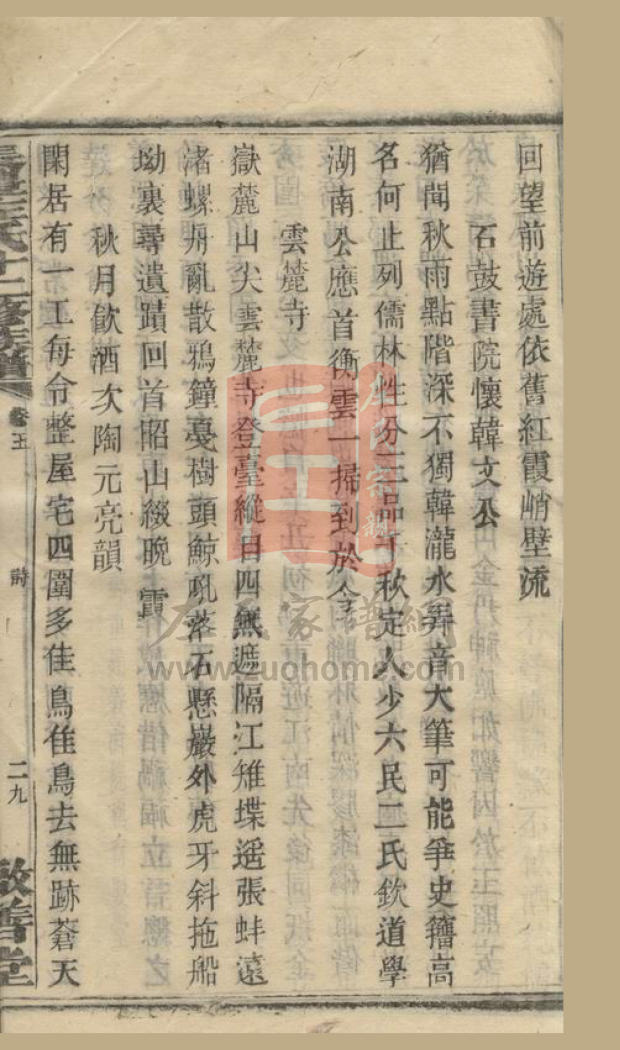 回望前遊處依舊紅霞峭壁流
石鼓書院懷韓文公
猶聞秋雨點階深不獨韓瀧水弄音大筆可能爭史籀高
名何止列儒林性分三品千秋定人少六民二氏欽道學
湖南公應首衡雲一掃到於今
雲麓寺
嶽麓山尖雲麓寺登臺縱目四無遮隔江雉堞遥張蚌遠
渚螺舟亂散鴉鐘戞樹頭鯨吼落石懸巖外虎牙斜拖船
坳裏尋遺蹟回首昭山綴晚霞
秋月飲酒次陶元亮韻
閑居有一工每令整屋宅四圍多佳鳥佳鳥去無跡蒼天
氏十二修族譜
卷五
詩
二九
敬善堂
左氏家譜網
www.zuohome.com